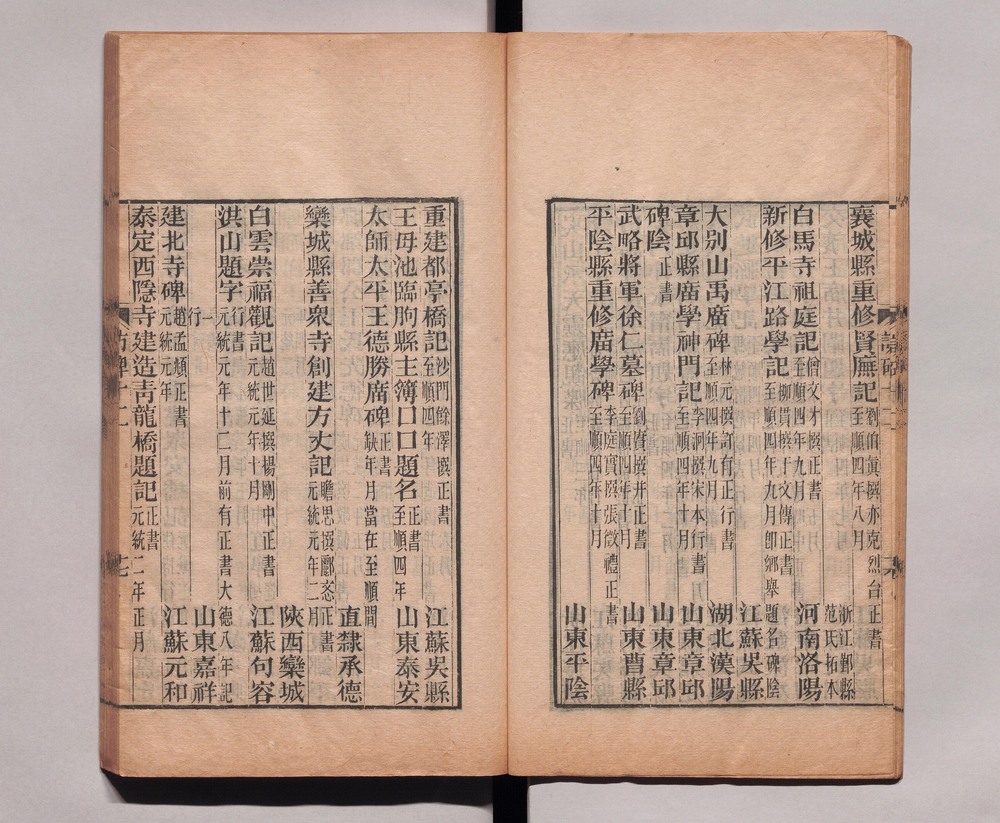 襄城縣重修賢廡記 劉伯眞撰亦克烈台正書 至順四年八月 浙江鄞縣范氏拓本
白馬寺祖庭記 僧文才撰正書 至順四年九月 河南洛陽
新修平江路學記 柳貫撰干文傳正書 至順四年九月卽鄉舉題名碑陰 江蘇吳縣
大別山禹廟碑 林元撰許有壬正行書 至順四年九月 湖北漢陽
章邱縣廟學神門記 李泂撰宋本行書 至順四年十月 山東章邱
碑陰 正書 山東章邱
武略將軍徐仁墓碑 至順四年十月 山東曹縣
平陰縣重修廟學碑 李庭實撰張徵禮正書 至順四年十月 山東平陰
重建都亭橋記 沙門餘澤撰正書 至順四年 江蘇吳縣
王毋池臨朐縣主簿口口題名 正書 至順四年 山東泰安
太師太平王德勝廟碑 正書 缺年月當在至順間 直隸承德
欒城縣善衆寺創建方丈記 瞻思撰 正書 元統元年二月 陝西欒城
白雲崇福觀記 趙世延撰楊剛中正書 元統元年十月 江蘇句容
洪山題字 行書 元統元年十二月前有正書大德八年記一行 山東嘉祥
建北寺碑 趙孟頫正書 元統元年 江蘇元和
泰定西隱寺建造靑龍橋題記 正書 元統二年正月
訪碑十二